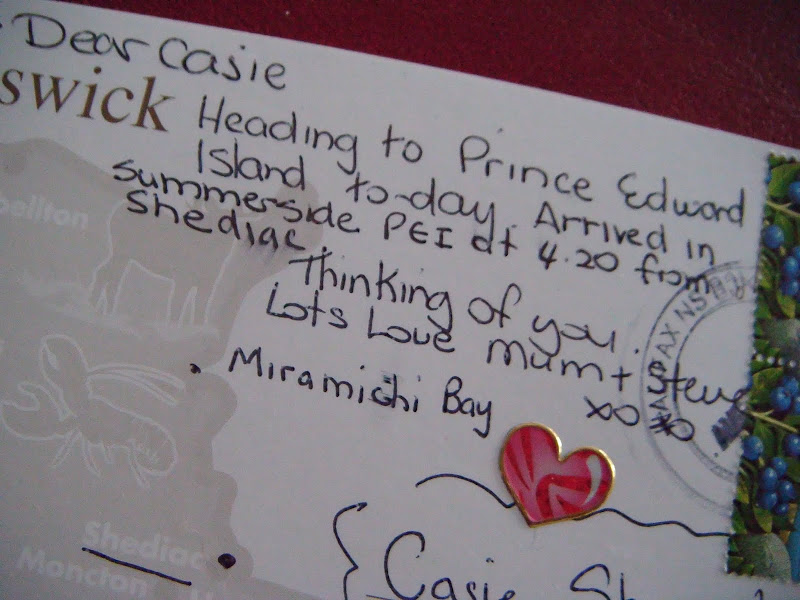 Dear Casie
swick
Heading to Prince Edward
Island to-day. Arrived in
Summerside PEI at 4.20 from
Shediac.
Thinking of you.
Lots Love Mum + Steve
xo xo
Miramichi Bay
bellton
HALIFAX NS
Shediac
Moncton
Casie